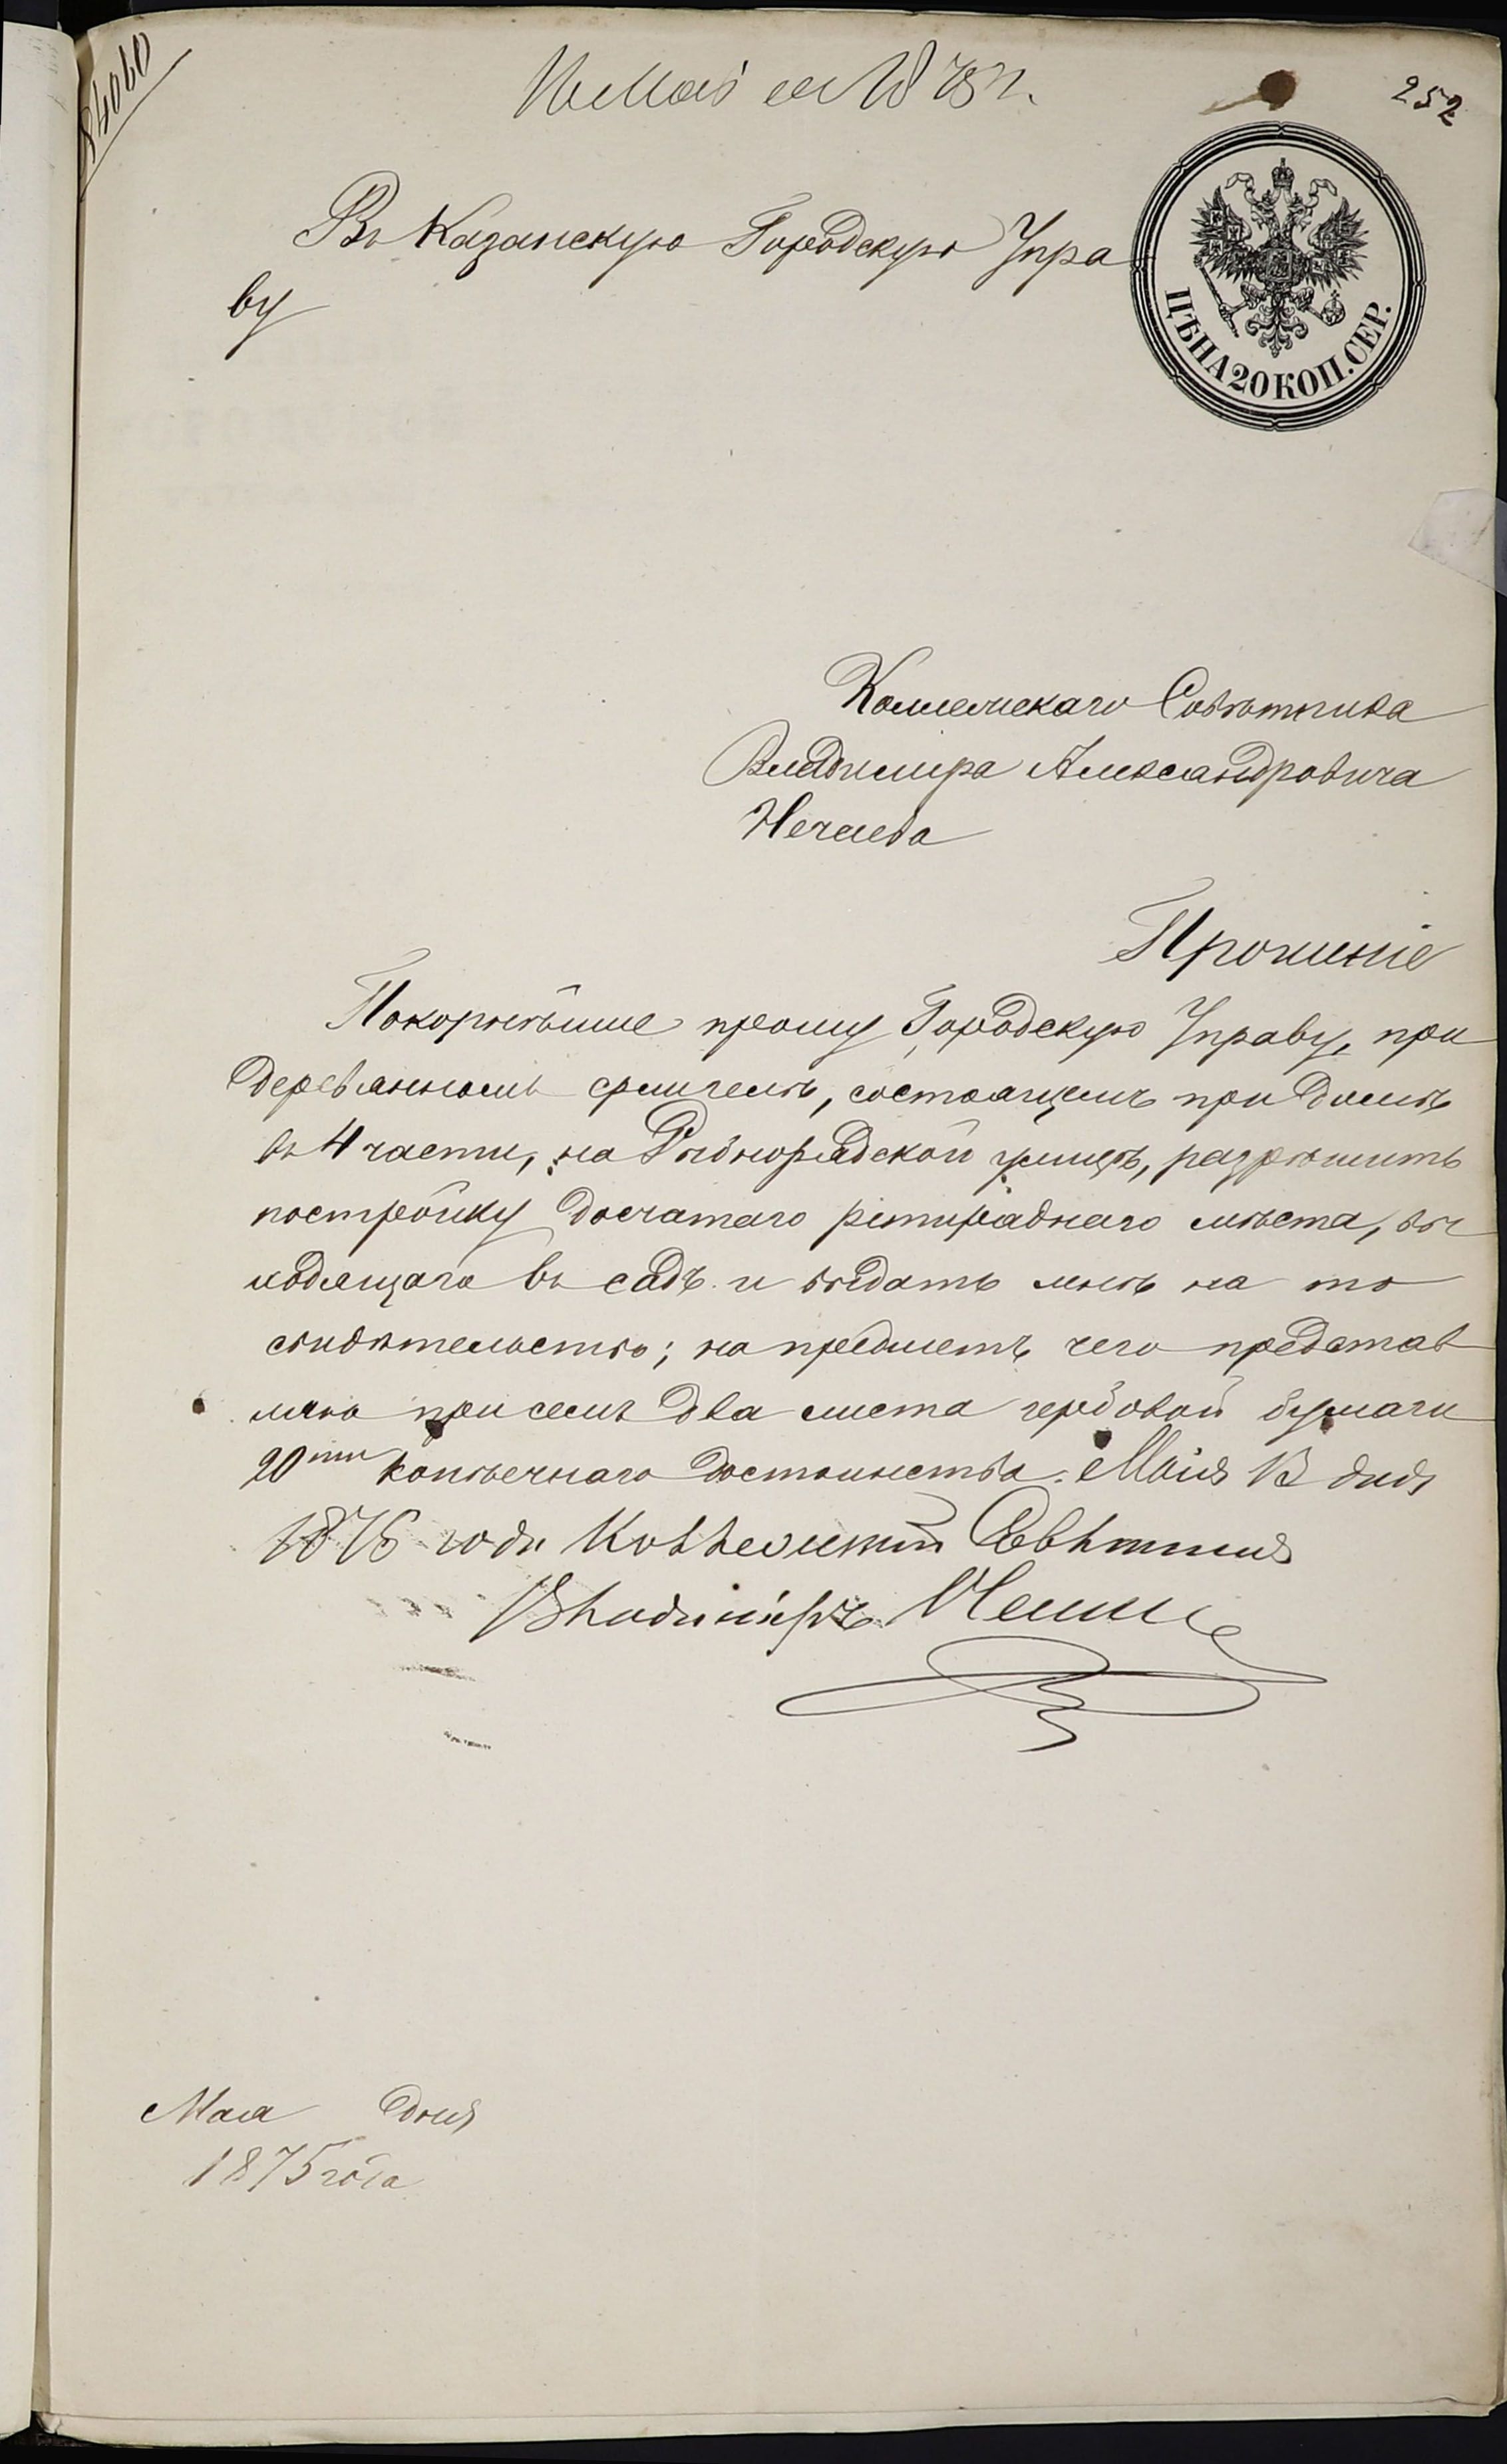 4060
252
Мая 1875 г.
Въ Казанскую Городскую Упра
ву
ЦѢНА 20 КОП. СЕР.
Коллежскаго Совѣтника
Владимира Александровича
Нечаева
Прошеніе
Покорнѣйше прошу Городскую Управу, при
деревянномъ флигелѣ, состоящемъ при домѣ
въ 4 части, на Рыбнорядской улицѣ, разрѣшить
постройку досчатаго ретираднаго мѣста, вы
ходящаго въ садъ и выдать мнѣ на то
свидѣтельство; на предметъ чего представ
ляю при семъ два листа гербовой бумаги
20ти копѣечнаго достоинства. Мая дня
1875 года Коллежскій Совѣтникъ
Владиміръ Нечаевъ
Мая дня
1875 года